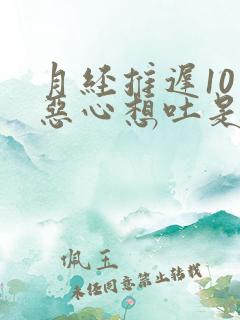 月经推遲10
惡心想吐是
佩玉
未经同意禁止转载